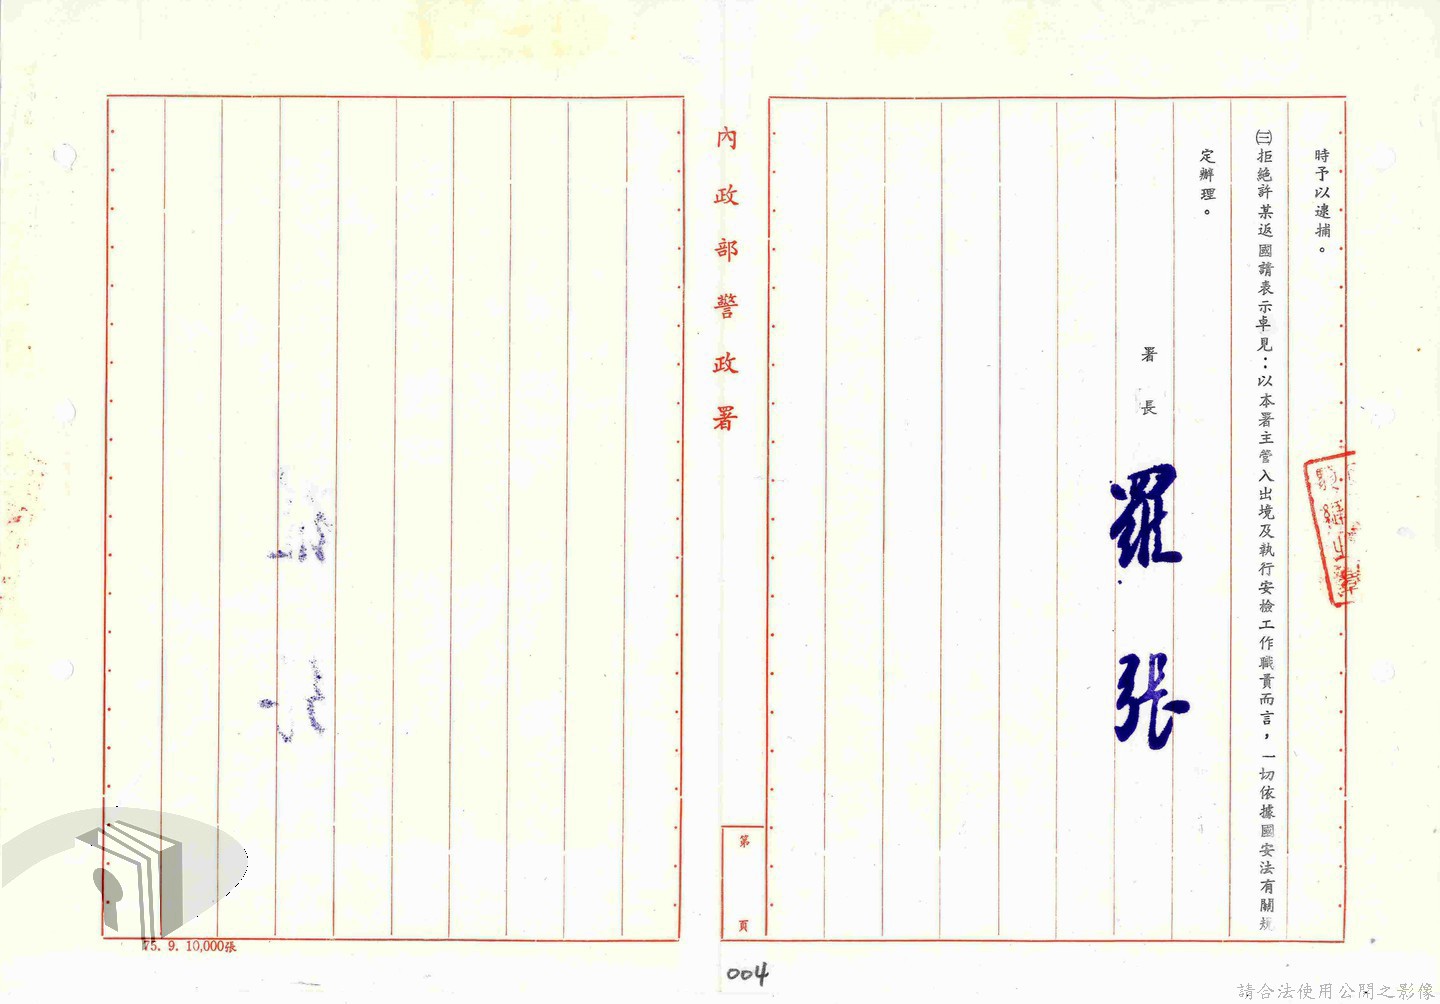 時予以逮捕。
㈢拒絕許某返國請表示卓見：以本署主管入出境及執行安檢工作職責而言，一切依據國安法有關規
定辦理。
署長
羅張
內政部警政署
第 頁
75. 9. 10,000張
004
請合法使用公開之影像